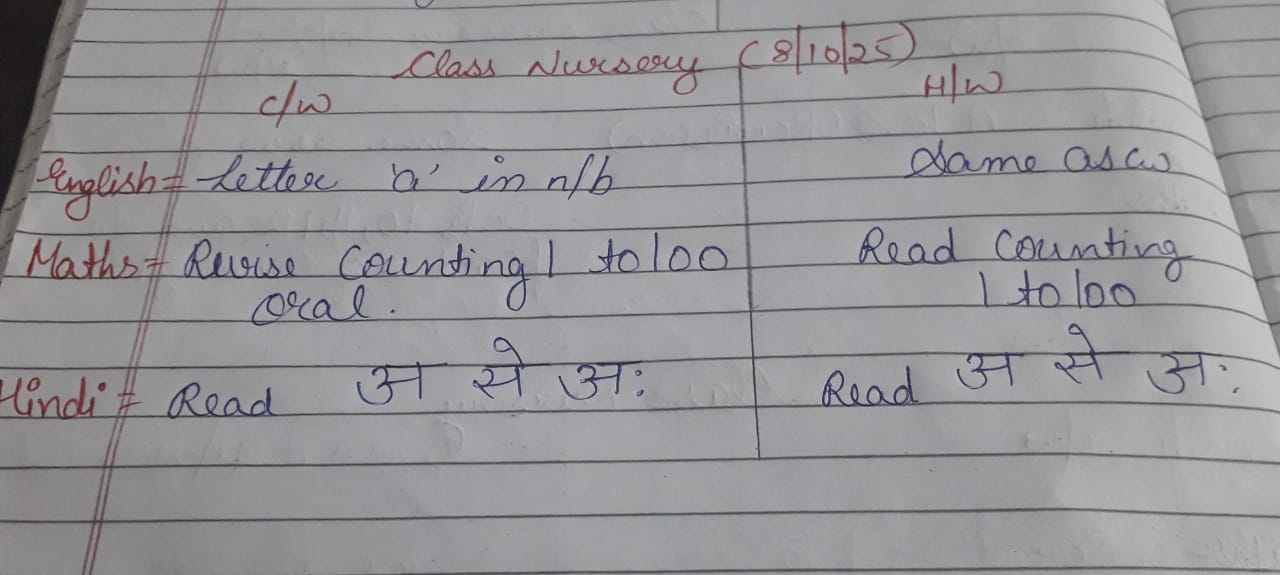 Class Nursery (8/10/25)
C/W H/W
English = Letter 'a' in n/b Same as cw
Maths = Revise Counting 1 to 100 Read Counting
oral. 1 to 100
Hindi = Read अ से अः Read अ से अः